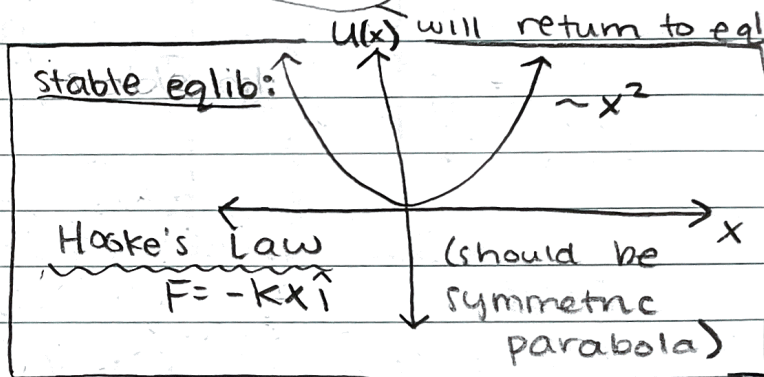 U(x) will return to eql
stable eqlib:
~x²
x
Hooke's Law
F = -kx î
(should be
symmetric
parabola)